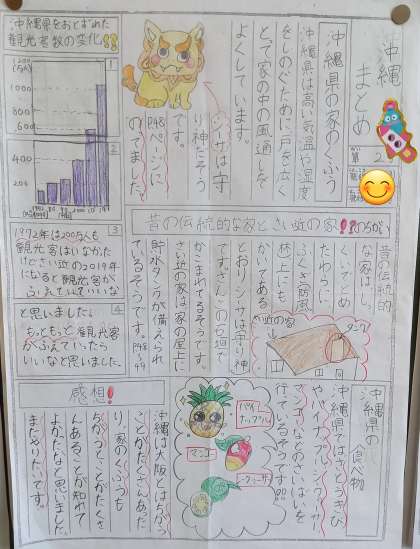 沖縄
まとめ
沖縄県の家のくふう
沖縄県は高い気温や湿度
をしのぐために戸を広く
とって家の中の風通しを
よくしています。
シーサーは守
り神だそう
です。
P48ページに
のってました。
沖縄県をおとずれた
観光客数の変化!!
1
(万人)
1200
1000
800
600
400
200
0
2
3
1972年は200万人も
観光客はいなかった
けどさい近の2019年
になると観光客が
ふえていていいな
4
と思いました。
もっともっと観光客
がふえていったら
いいなと思いました。
昔の伝統的な家とさい近の家!!のちがい
昔の伝統的
な家は、しっ
くいでとめ
たかわらに
ふくぎ防風
林上にも
かいてある
とおりシーサーは守り神
です。さんごの石垣で
かこまれてるそうです。
さい近の家は家の屋上に
貯水タンクが備えられ
ているそうです。
P48~49
さい近の家
タンク
沖縄県の
食べ物
沖縄県ではさとうきび
やパイナップル、シークヮーサー、
マンゴーなどのさいばいを
行っているそうです。
パイ
ナップル
マンゴー
シークヮーサー
感想!
沖縄は大阪とはちがう
ことがたくさんあった
り、家のくふうも
ちがうことがたくさ
んあることが知れて
よかったなと思いました。
またやりたいです。